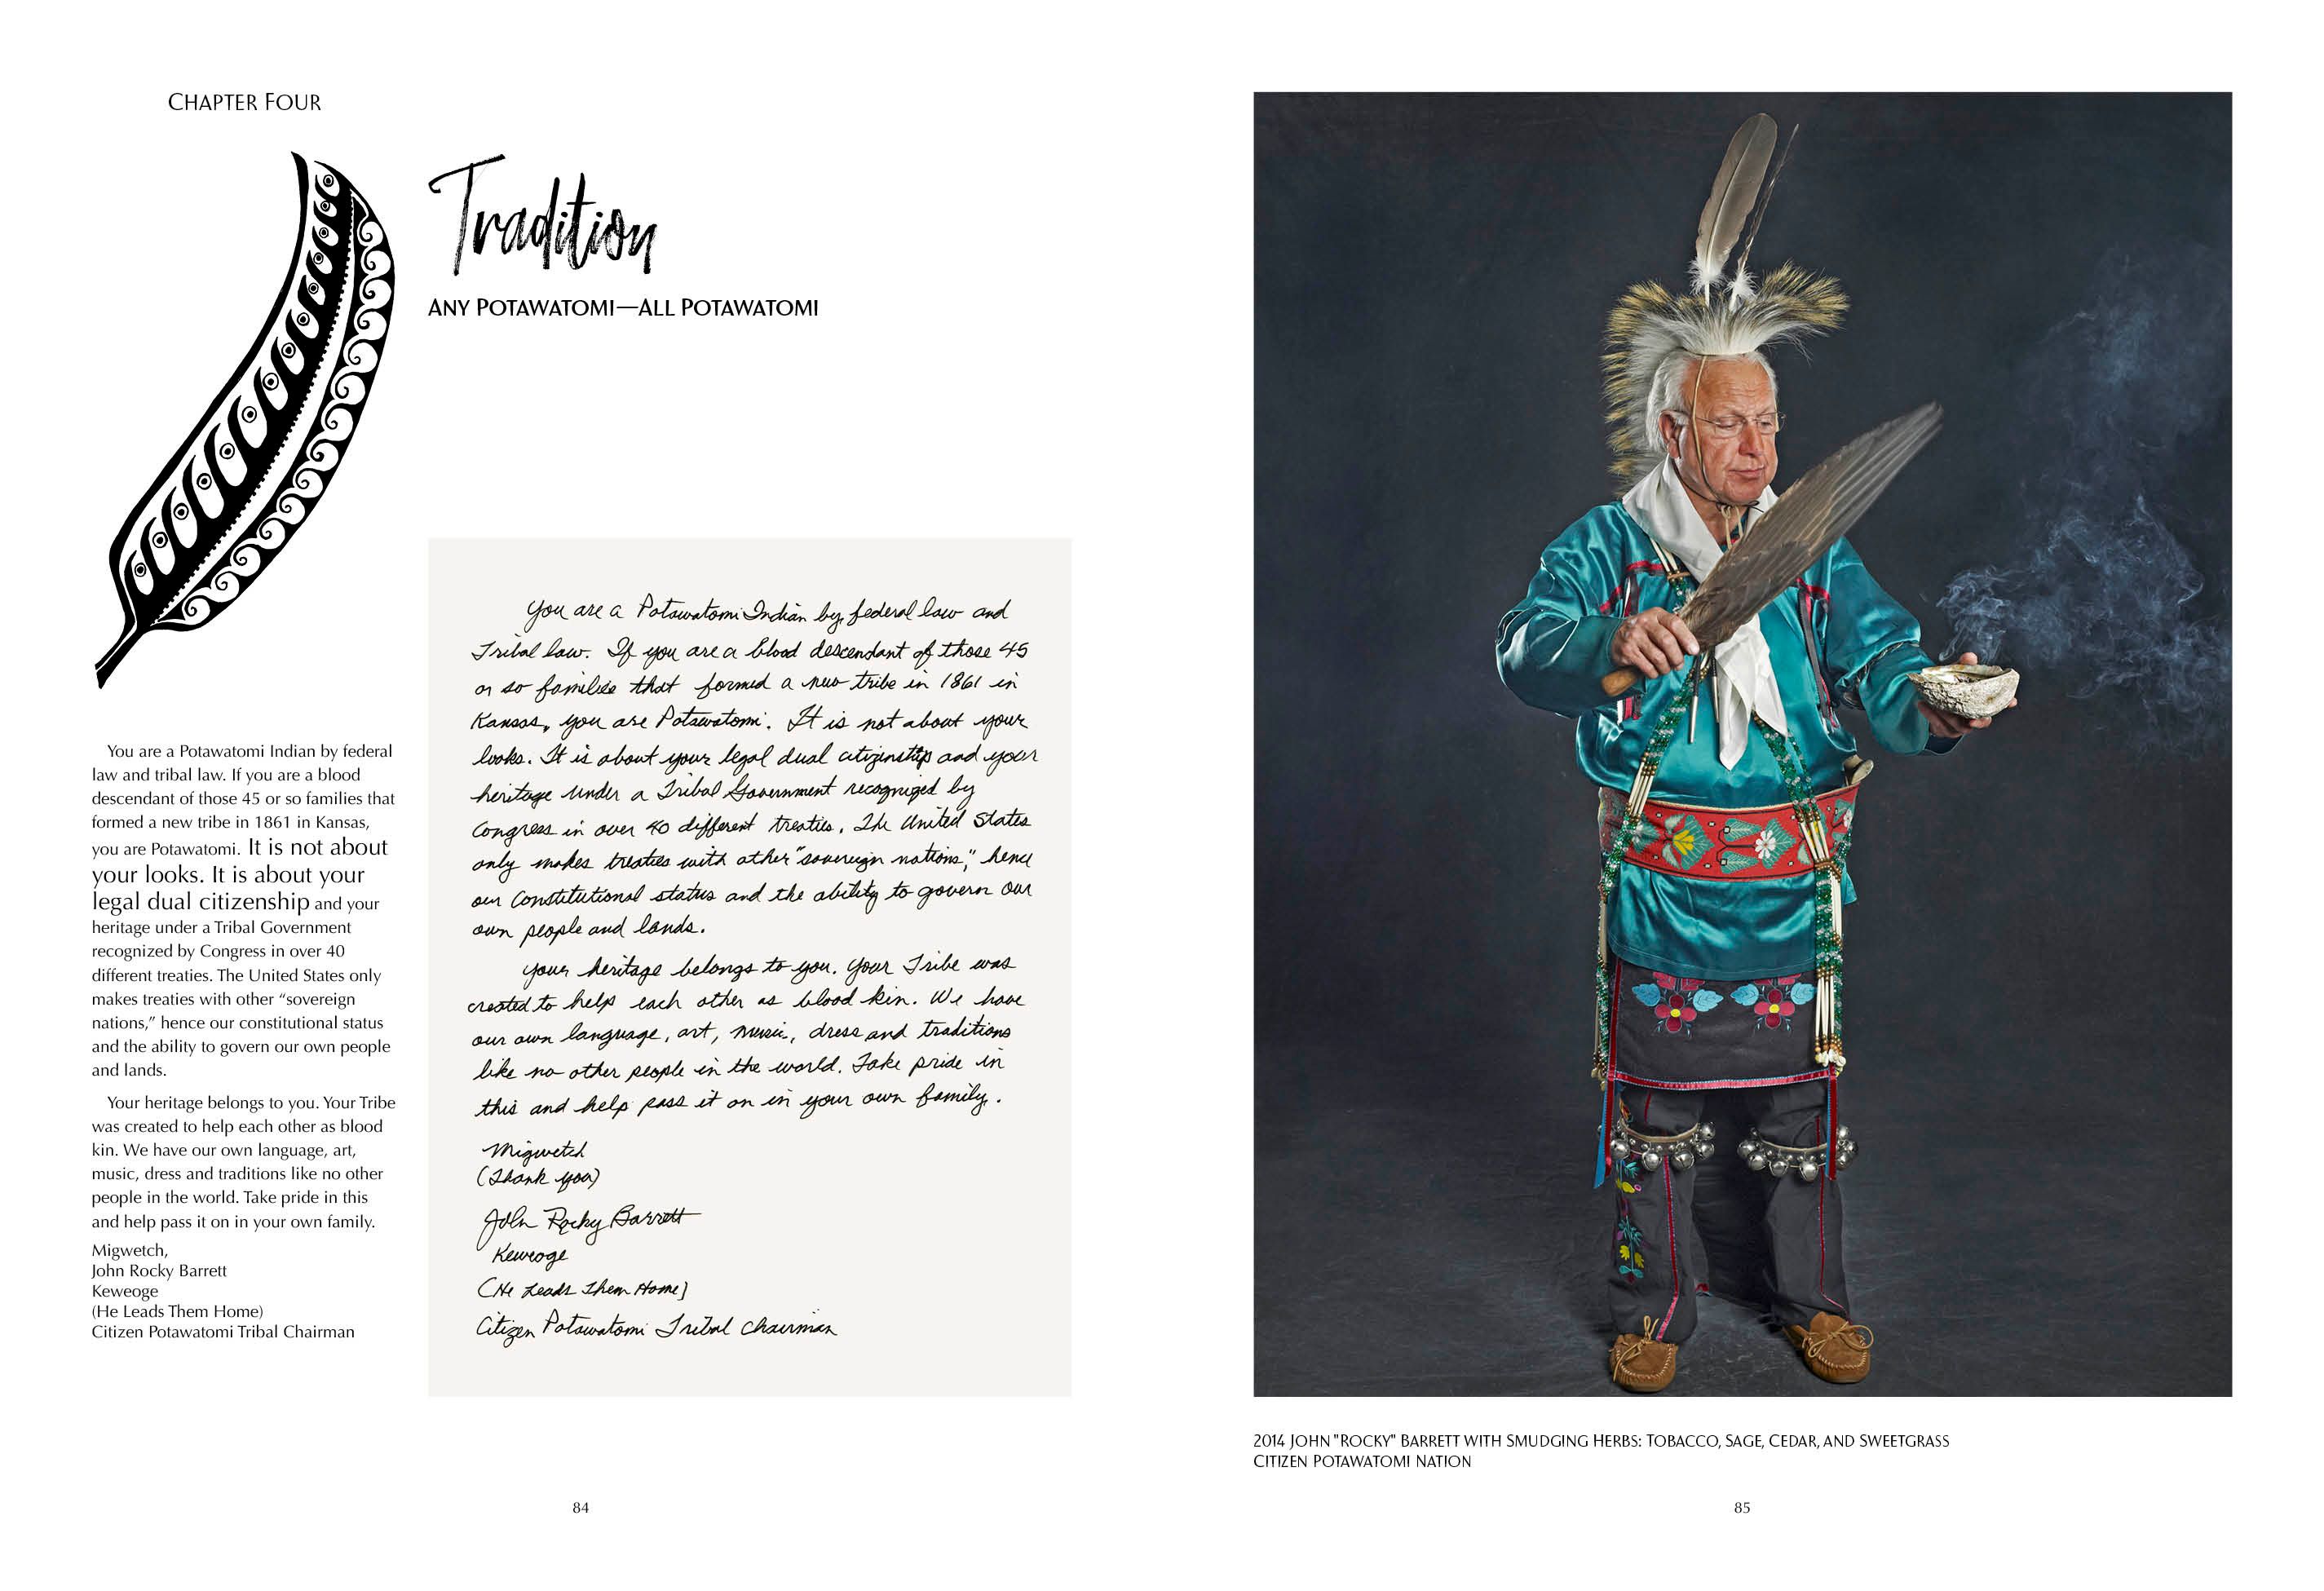 CHAPTER FOUR
Tradition
ANY POTAWATOMI—ALL POTAWATOMI
You are a Potawatomi Indian by federal
law and tribal law. If you are a blood
descendant of those 45 or so families that
formed a new tribe in 1861 in Kansas,
you are Potawatomi. It is not about
your looks. It is about your
legal dual citizenship and your
heritage under a Tribal Government
recognized by Congress in over 40
different treaties. The United States only
makes treaties with other “sovereign
nations,” hence our constitutional status
and the ability to govern our own people
and lands.
Your heritage belongs to you. Your Tribe
was created to help each other as blood
kin. We have our own language, art,
music, dress and traditions like no other
people in the world. Take pride in this
and help pass it on in your own family.
Migwetch,
John Rocky Barrett
Keweoge
(He Leads Them Home)
Citizen Potawatomi Tribal Chairman
You are a Potawatomi Indian by federal law and
Tribal law. If you are a blood descendant of those 45
or so families that formed a new tribe in 1861 in
Kansas, you are Potawatomi. It is not about your
looks. It is about your legal dual citizenship and your
heritage under a Tribal Government recognized by
Congress in over 40 different treaties. The United States
only makes treaties with other "sovereign nations," hence
our Constitutional status and the ability to govern our
own people and lands.
Your heritage belongs to you. Your Tribe was
created to help each other as blood kin. We have
our own language, art, music, dress and traditions
like no other people in the world. Take pride in
this and help pass it on in your own family.
Migwetch
(Thank you)
John Rocky Barrett
Keweoge
(He Leads Them Home)
Citizen Potawatomi Tribal Chairman
2014 JOHN "ROCKY" BARRETT WITH SMUDGING HERBS: TOBACCO, SAGE, CEDAR, AND SWEETGRASS
CITIZEN POTAWATOMI NATION
84
85